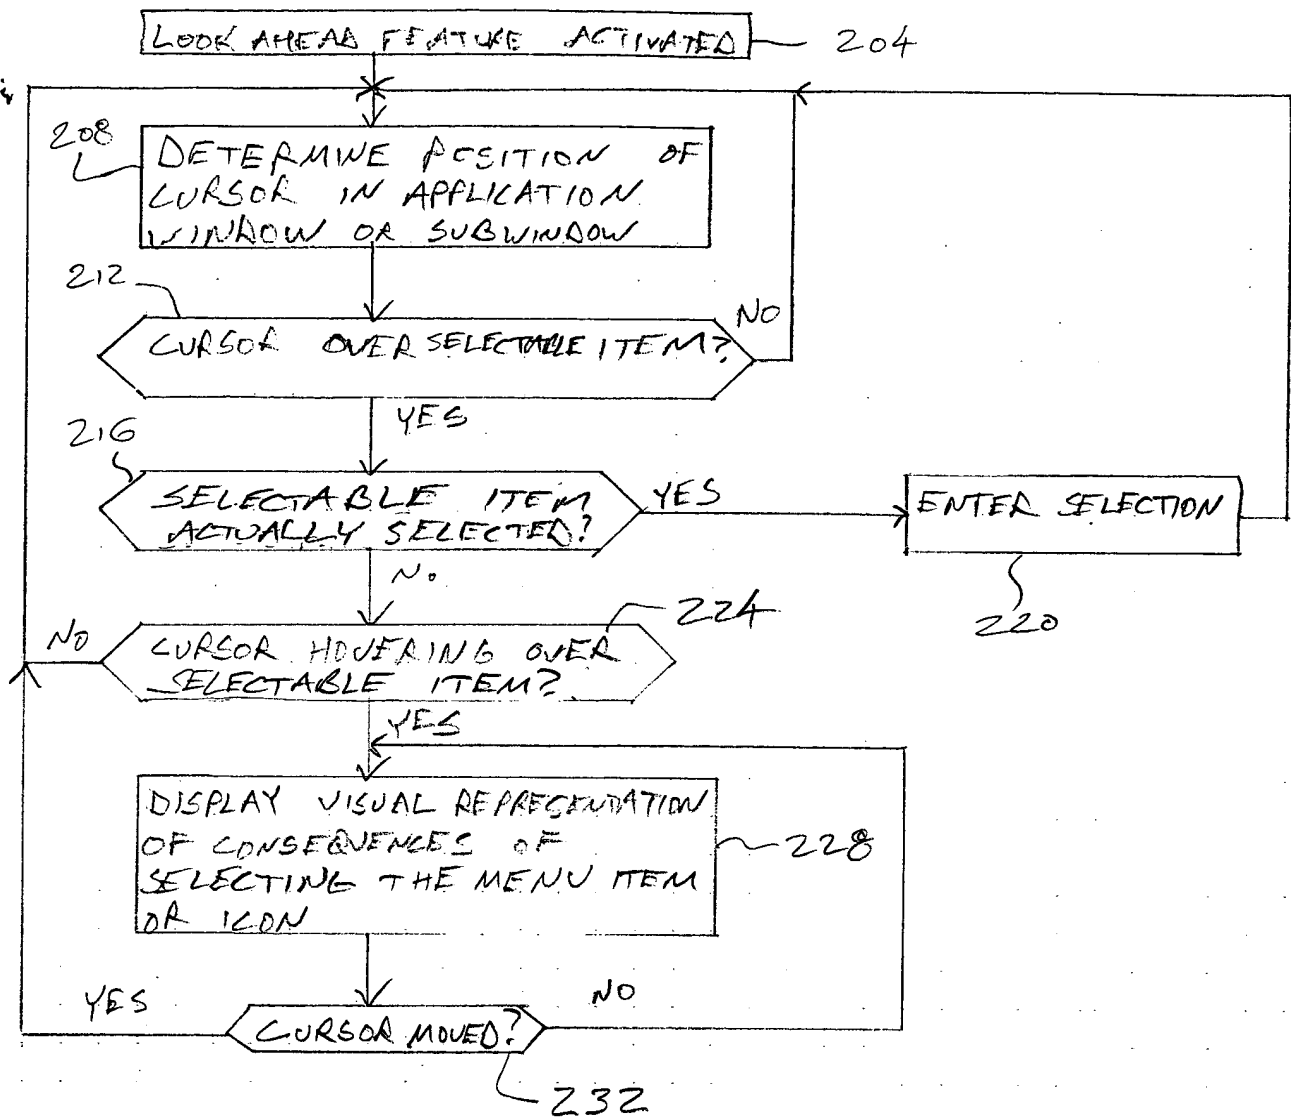 LOOK AHEAD FEATURE ACTIVATED
204
208
DETERMINE POSITION OF
CURSOR IN APPLICATION
WINDOW OR SUBWINDOW
212
NO
CURSOR OVER SELECTABLE ITEM?
YES
216
SELECTABLE ITEM
ACTUALLY SELECTED?
YES
ENTER SELECTION
220
NO
224
NO
CURSOR HOVERING OVER
SELECTABLE ITEM?
YES
DISPLAY VISUAL REPRESENTATION
OF CONSEQUENCES OF
SELECTING THE MENU ITEM
OR ICON
228
YES
NO
CURSOR MOVED?
232